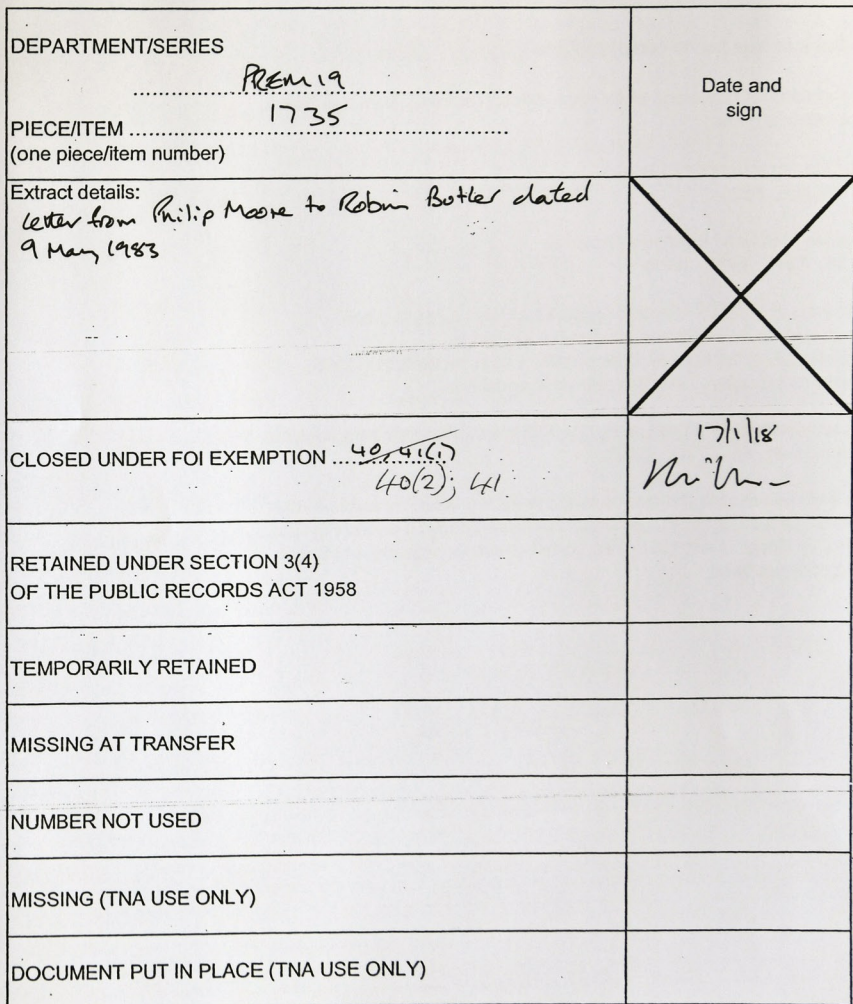 DEPARTMENT/SERIES
PREM 19
PIECE/ITEM 1735
(one piece/item number)
Date and
sign
Extract details:
Letter from Philip Moore to Robin Butler dated
9 May 1983
CLOSED UNDER FOI EXEMPTION 40, 41(1)
40(2); 41
17/1/18
RETAINED UNDER SECTION 3(4)
OF THE PUBLIC RECORDS ACT 1958
TEMPORARILY RETAINED
MISSING AT TRANSFER
NUMBER NOT USED
MISSING (TNA USE ONLY)
DOCUMENT PUT IN PLACE (TNA USE ONLY)